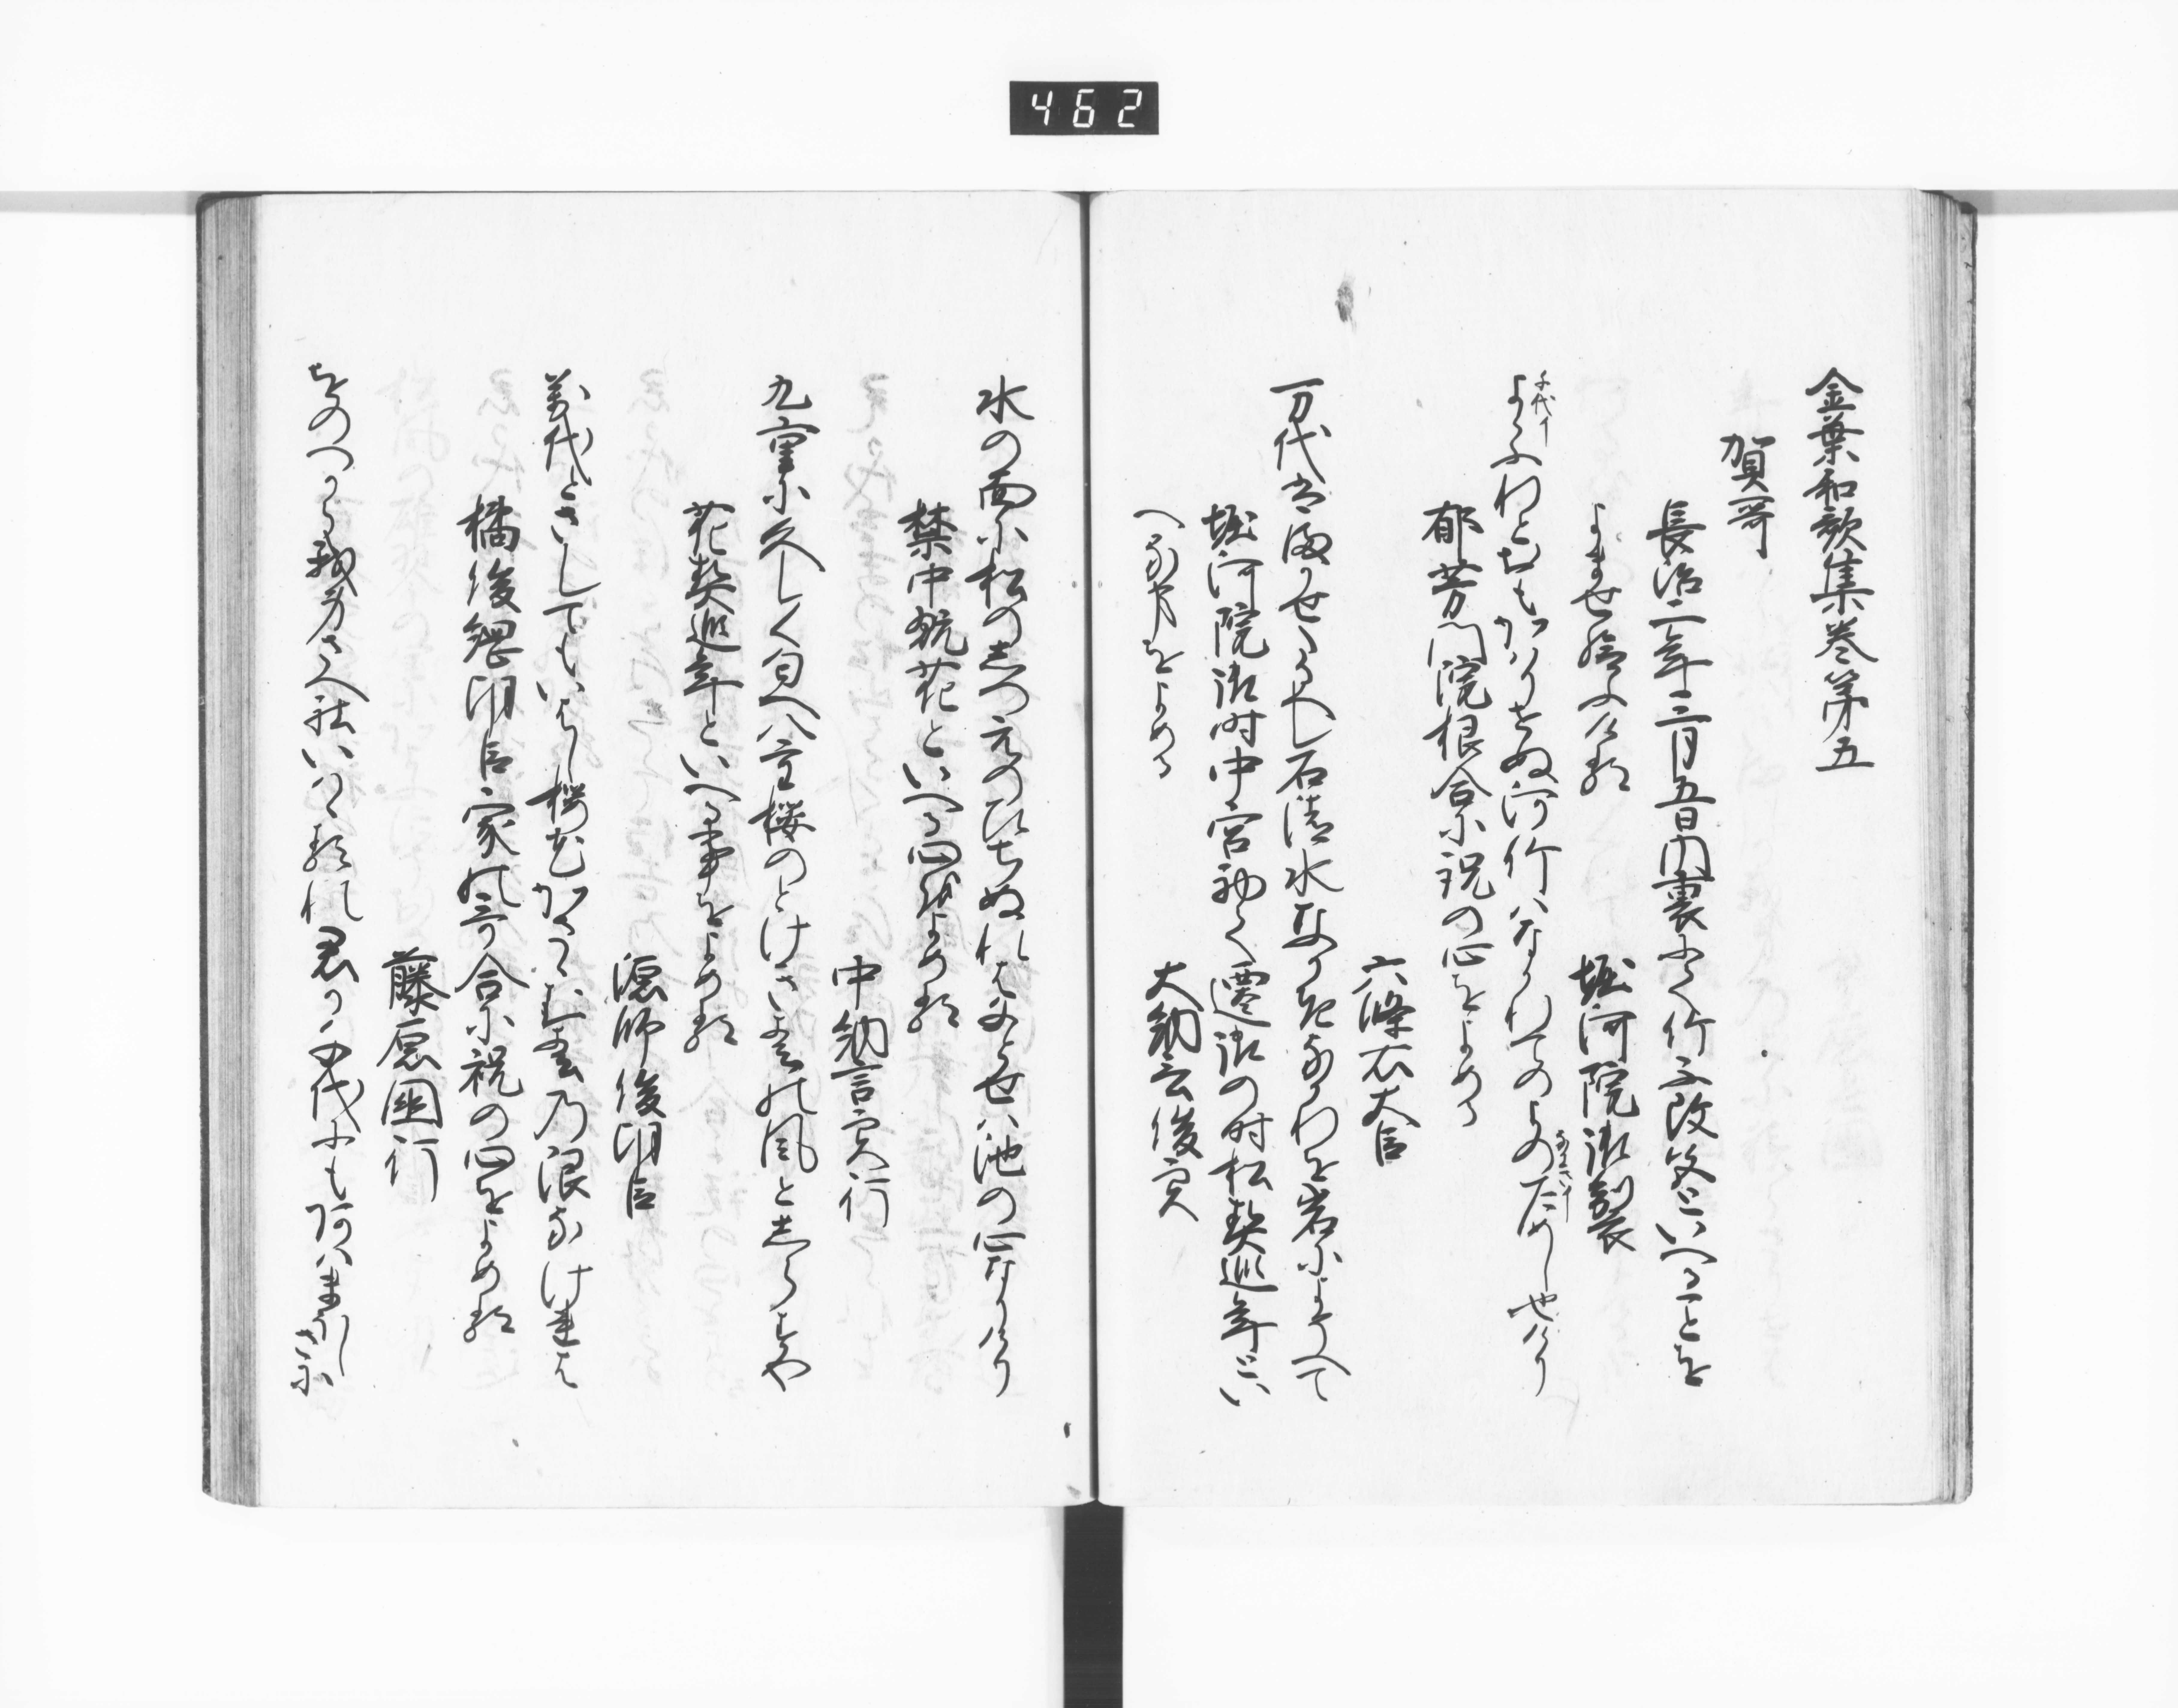 462
金葉和歌集巻第五
賀哥
長治二年三月五日内裏にて竹不改色といへることを
よませ給ける
堀河院御製
千代イ
よろつよふれとおもかはりせぬ河竹はなかれてのよのためし也けり
なるへきイ
郁芳門院根合に祝の心をよめる
六條右大臣
万代はまかせたるへし石清水なかきなかれを岩によそへて
堀河院御時中宮初て遷御の時松契遐年とい
へる事をよめる
大納言俊実
水の面に松のしつえのひちぬれはちとせは池の心なりけり
禁中翫花といへる心をよめる
中納言実行
九重に久しく匂へ八重桜のとけき春の風としらすや
花契遐年といへる事をよめる
源師俊朝臣
万代とさしてもいはし桜花かさゝむ春の限なけれは
橘俊綱朝臣家の哥合に祝の心をよめる
藤原国行
をのつから我身さへ社いはゝるれ君か千代にもあはまほしさに